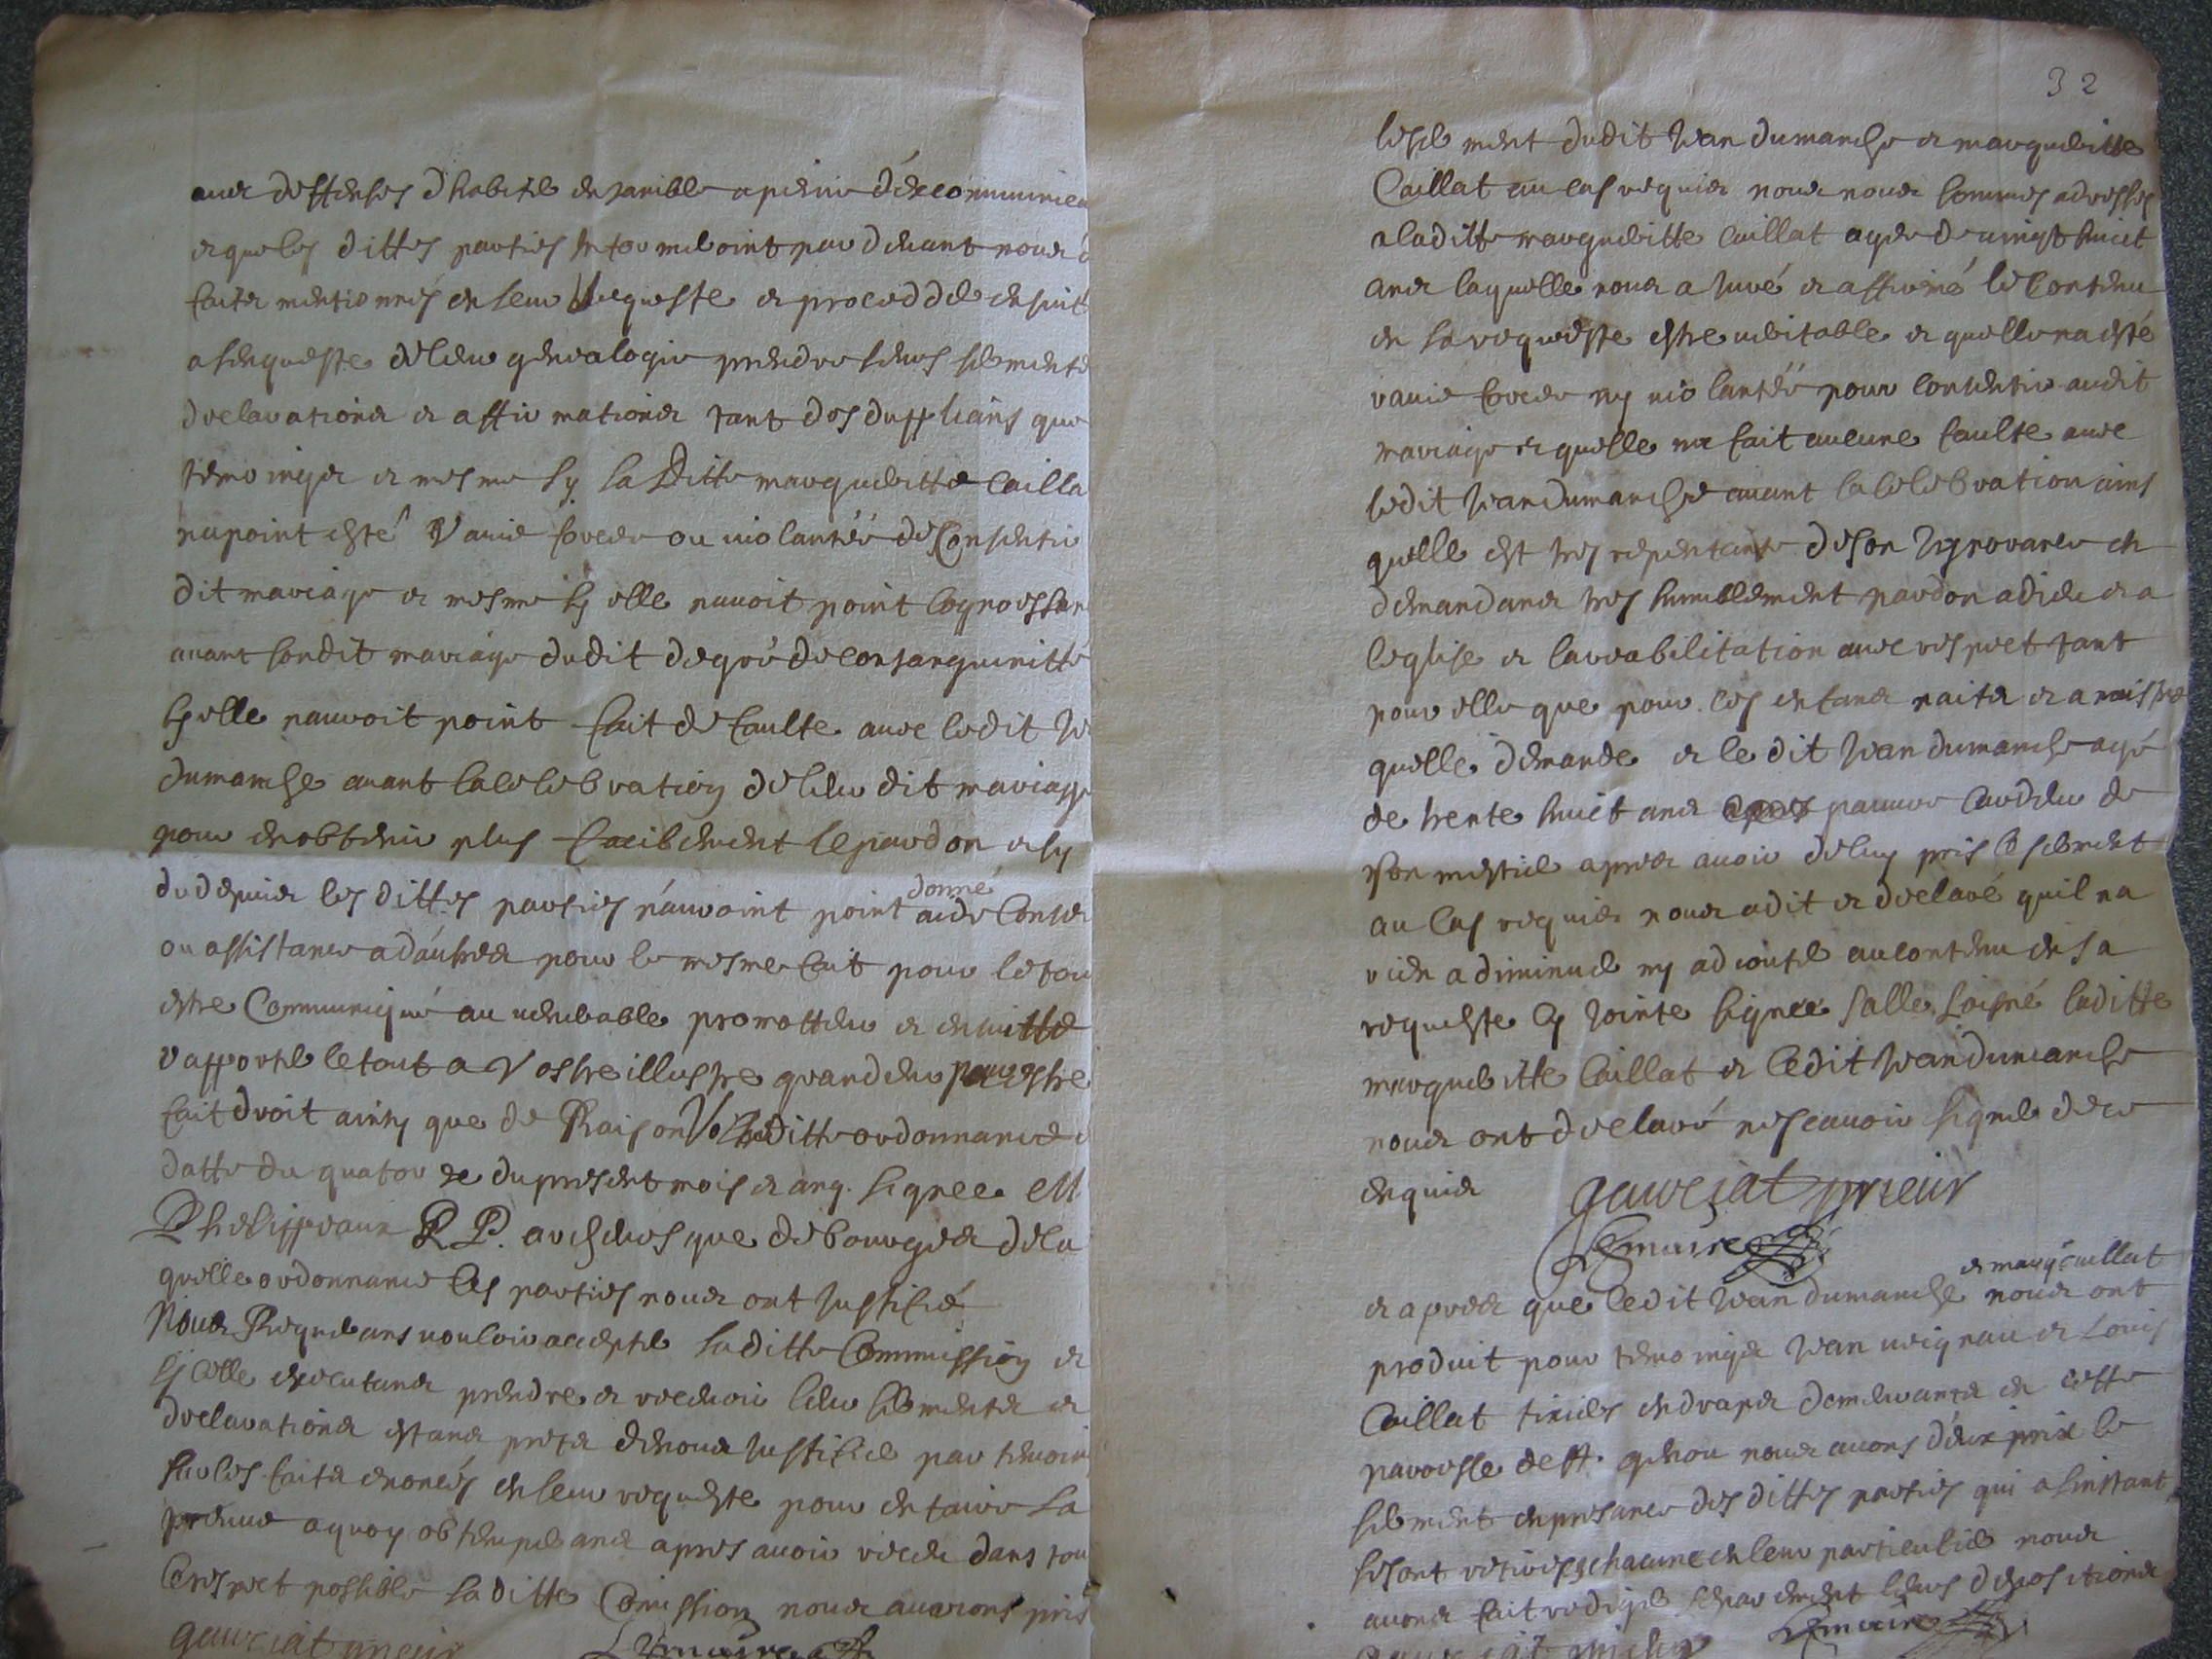 avec deffenses d'habiter ensemble a peinne d'excommunica
et que les dittes parties informeroint par devant nous d
faits mentionnés en leur Requeste et procedder ensuitt
a l'enqueste de leur genealogie prendre leurs serments
declarations et affirmations tant des supplians que
témoings et mesme sy laditte margueritte Cailla
na point esté Ravie forcée ou violantée de Consentir
dit mariage et mesme sy elle navoit point Cognoissan
avant sondit mariage dudit degré de consanguinitté
sy elle nauroit point fait de faulte avec ledit Je
dumarche avant la celebration de leur dit mariage
pour en obtenir plus facilement le pardon et sy
du depuis les dittes parties n'auroint point donné aide Conse
ou assistance a d'autres pour le mesme fait pour le tou
estre Communiqué au venerable promotteur et ensuitte
rapporté le tout a Vostre illustre grandeur pour estre
fait droit ainsy que de Raison Vo laditte ordonnance e
datte du quatorze du present mois et an. signee M
Phelippeaux P. P. archevesque de bourges de la
quelle ordonnance les parties nous ont justifié
Nous Requerans vouloir accepter laditte Commission et
icelle executant prendre et recevoir leur serments et
declarations estans prets de nous justifier par témoin
sur les faits enoncés en leur requeste pour en faire la
preuve a quoy obtemperans apres avoir receu dans tou
le respect possible laditte Comission nous aurions pris
gaucziat prieur Lemaire
32
le serment dudit Jean dumarche et marguerite
Caillat au cas requis nous nous sommes adressés
a laditte margueritte Caillat agée de vingt huict
ans laquelle nous a juré et affirmé le Contenu
en sa requeste estre veritable et quelle na esté
ravie forcée ny violantée pour consentir audit
mariage et quelle na fait aucune faulte avec
ledit Jean dumarche avant la celebration ains
quelle est tres repentante de son Ignorance en
demandans tres humblement pardon a dieu et a
leglise et la reabilitation avec respect tant
pour elle que pour les enfans naits et a naistre
quelle demande et le dit Jean dumarche agé
de trente huict ans pauvre Cardeur de
son mestier apres avoir de luy pris le serment
au Cas requis nous a dit et declaré quil na
rien a diminuer ny adjouter au contenu en sa
requeste Cy jointe signee Salle laditte
margueritte Caillat et ledit Jean dumarche
nous ont declaré ne scavoir signer de ce
enquis gaucziat prieur
Lemaire
et apres que ledit Jean dumarche et marg Caillat nous ont
produit pour témoings Jean veignau et Louis
Caillat tixiers en draps demeurants en cette
paroisse de st. genou nous avons d'eux pris le
serment en presance des dittes parties qui a linstant
se sont retirées chacune en leur particulier nous
avons fait rediger separement leurs depositions
Lemaire